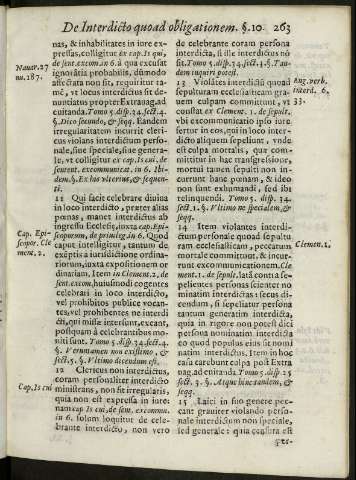 De Interdicto quoad obligationem. §.10. 263
nas, & inhabilitates in iure ex-
pressas, colligitur ex cap. Is qui,
de sent. excom. in 6. à qua excusat
ignorātia probabilis, dūmodo
affectata non sit, requiritur ta-
mē, vt locus interdictus sit de-
nuntiatus propter Extrauag. ad
euitanda. Tomo 5. disp. 34. sect. 4.
§. Dico secundo, & seqq. Eandem
irregularitatem incurrit cleri-
cus violans interdictum perso-
nale, siue speciale, siue genera-
le, vt colligitur ex cap. Is cui, de
sentent. excommunicat. in 6. Ibi-
dem. §. Ex hoc vlterius, & sequen-
ti.
Nauar. 27
nu. 187.
11 Qui facit celebrare diuina
in loco interdicto, præter alias
pœnas, manet interdictus ab
ingressu Ecclesiæ, iuxta cap. Epi-
scoporum, de priuileg. in 6. Quod
caput intelligitur, tantum de
exēptis a iurisdictione ordina-
riorum, iuxta expositionem or
dinariam. Item in Clement. 2. de
sent. excom. huiusmodi cogentes
celebrari in loco interdicto,
vel prohibitos publice vocan-
tes, vel prohibentes ne interdi
cti, qui missæ intersunt, exeant,
postquam a celebrantibus mo-
niti sunt. Tomo 5. disp. 34. sect. 4.
§. Verumtamen non existimo, &
sect. 5. §. Vltimo dicendum est.
Cap. Epi-
scopor. Cle
ment. 2.
12 Clericus non interdictus,
coram personaliter interdicto
ministrans, non fit irregularis,
quia non est expressa in iure:
nam cap. Is cui, de sent. excommun.
in 6. solum loquitur de cele-
brante interdicto, non vero
Cap. Is cui
de celebrante coram persona
interdicta, si ille interdictus nō
sit. Tomo 5. disp. 34. sect. 1. §. Tan-
dem inquiri potest.
13 Violātes interdictū quoad
sepulturam ecclesiasticam gra-
uem culpam committunt, vt
constat ex Clement. 1. de sepult.
vbi excommunicatio ipso iure
fertur in eos, qui in loco inter-
dicto aliquem sepeliunt, vnde
est culpa mortalis, quę com-
mittitur in hac transgressione,
mortui tamen sepulti non in-
currunt hanc pœnam, & ideo
non sunt exhumandi, sed ibi
relinquendi. Tomo 5. disp. 34.
sect. 1. §. Vltimo in speciali em, &
seqq.
Aug. verb.
interd. 6.
33.
14 Item violantes interdi-
ctum personale quoad sepultu
ram ecclesiasticam, peccatum
mortale committunt, & incur-
runt excommunicationem, Cle
ment. 1. de sepult. latā contra se-
pelientes personas scienter no
minatim interdictas: secus di-
cendum, si sepeliatur persona
tantum generatim interdicta,
quia in rigore non potest dici
persona nominatim interdicta
eo quod populus eius sit nomi
natim interdictus. Item in hoc
casu carebunt culpa post Extra
uag. ad euitanda. Tomo 5. disp. 25
sect. 3. §. Atque hinc tandem, &
seqq.
Clement. 1.
15 Laici in suo genere pec-
cant grauiter violando perso-
nale interdictum non speciale,
sed generale: quia censura est
per-